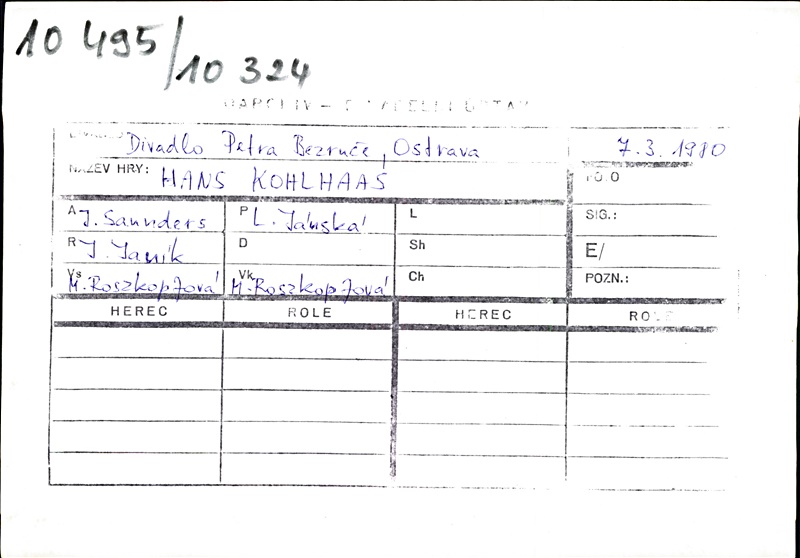 10 495/10 324
Divadlo Petra Bezruče, Ostrava 7.3. 1980
NÁZEV HRY: HANS KOHLHAAS FOTO
A J. Saunders P L. Jánská L SIG.:
R J. Janík D Sh E/
Vs M. Roszkopfová Vk M. Roszkopfová Ch POZN.:
HEREC ROLE HEREC ROLE